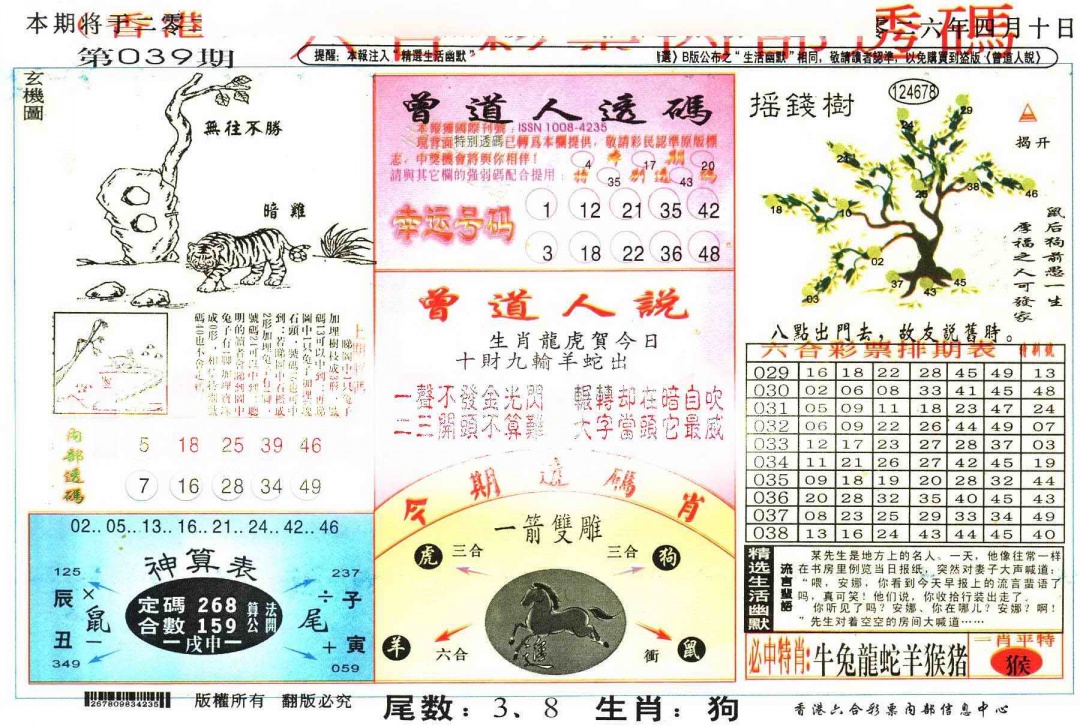 本期将于二零
零二六年四月十日
香港六合彩票
透碼
第039期
提醒：本報注入"精選生活幽默"
B版公布之"生活幽默"相同，敬請讀者認準，以免購買到盗版《曾道人說》
玄機圖
無往不勝
暗雞
内部透碼
5 18 25 39 46
7 16 28 34 49
曾道人透碼
本報獲國際刊號：ISSN 1008-4235
現背面特别透碼已轉爲本欄提供，敬請彩民認準原版標
志，中獎機會將與你相伴！
請與其它欄的強弱碼配合提用：
4 17 20
35 43
幸运号码
1 12 21 35 42
3 18 22 36 48
曾道人説
生肖龍虎賀今日
十財九輸羊蛇出
一聲不發金光閃 輾轉却在暗自吹
二三開頭不算難 大字當頭它最威
今期透碼肖
一箭雙雕
虎 三合 三合 狗
羊 六合 衝 鼠
摇錢樹
124678
揭开
24 29
23
18 10 26 38 46
02
03 37 43 45
鼠后狗前愚一生
厚福之人可發家
八點出門去，故友説舊時。
六合彩票排期表 特别號
029 16 18 22 28 45 49 13
030 02 06 08 33 41 45 48
031 05 09 11 18 23 47 24
032 06 09 22 26 44 49 07
033 12 17 23 27 28 37 03
034 11 21 26 27 42 45 19
035 09 18 19 20 28 32 44
036 20 28 32 35 40 45 43
037 08 23 25 29 33 34 49
038 13 16 24 43 44 45 40
精选生活幽默
流言蜚語
某先生是地方上的名人、一天，他像往常一样
在书房里例览当日报纸，突然对妻子大声喊道：
"喂，安娜，你看到今天早报上的流言蜚语了
吗，真可笑！他们说，你收拾行装出走了．
你听见了吗？安娜、你在哪儿？安娜？啊！
"先生对着空空的房间大喊道……
必中特肖:牛兔龍蛇羊猴猪
一肖平特
猴
02..05..13..16..21..24..42..46
神算表
125 237
辰×鼠一丑
÷子尾+寅
定碼 268
合數 159
算法公開
戌申
349 059
267809834235
版權所有 翻版必究
尾数：3、8 生肖：狗
香港六合彩票内部信息中心